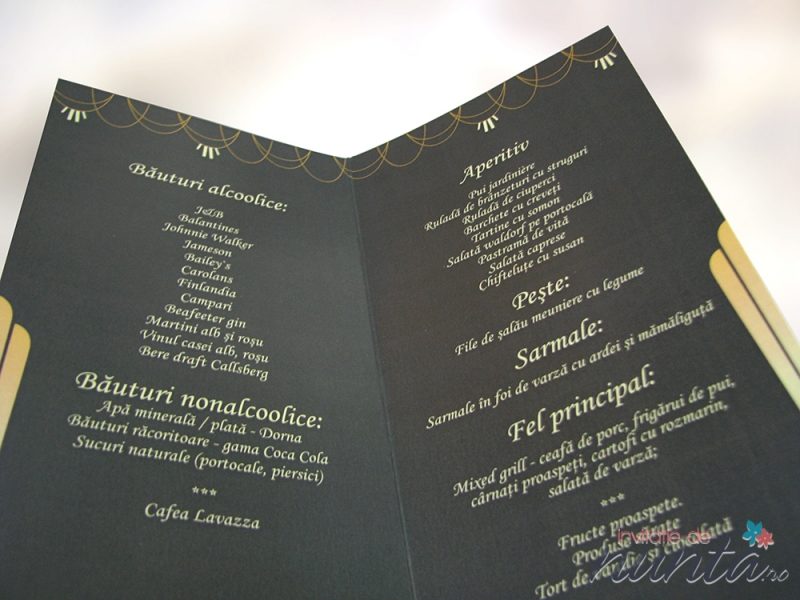 Băuturi alcoolice:
J&B
Balantines
Johnnie Walker
Jameson
Bailey`s
Carolans
Finlandia
Campari
Beafeeter gin
Martini alb și roșu
Vinul casei alb, roșu
Bere draft Callsberg
Băuturi nonalcoolice:
Apă minerală / plată - Dorna
Băuturi răcoritoare - gama Coca Cola
Sucuri naturale (portocale, piersici)
***
Cafea Lavazza
Aperitiv
Pui jardinière
Ruladă de brânzeturi cu struguri
Ruladă de ciuperci
Barchete cu creveți
Tartine cu somon
Salată waldorf pe portocală
Pastramă de vită
Salată caprese
Chifteluțe cu susan
Pește:
File de șalău meuniere cu legume
Sarmale:
Sarmale în foi de varză cu ardei și mămăliguță
Fel principal:
Mixed grill - ceafă de porc, frigărui de pui,
cârnați proaspeți, cartofi cu rozmarin,
salată de varză;
***
Fructe proaspete.
Produse sărate
Tort de vanilie și ciocolată
invitatie de
nunta.ro